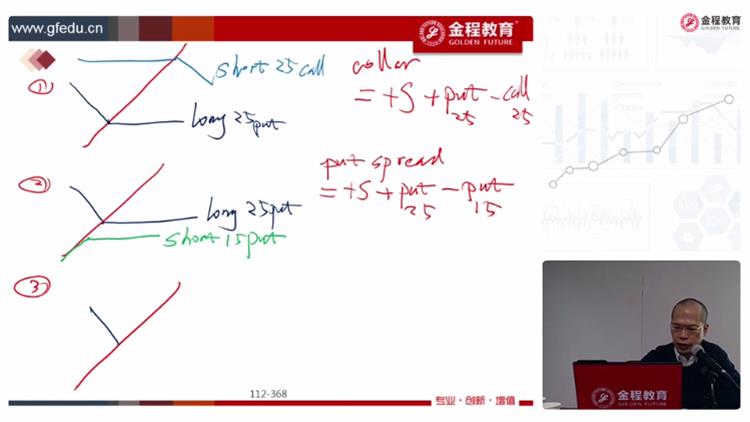 www.gfedu.cn
金程教育
GOLDEN FUTURE
金程教育
GOLDEN FUTURE
①
short 25 call
long 25put
collar
= +S + put - call
25 25
②
long 25put
short 15put
put spread
= +S + put - put
25 15
③
112-368
专业·创新·增值
金程教育
GOLDEN FUTURE